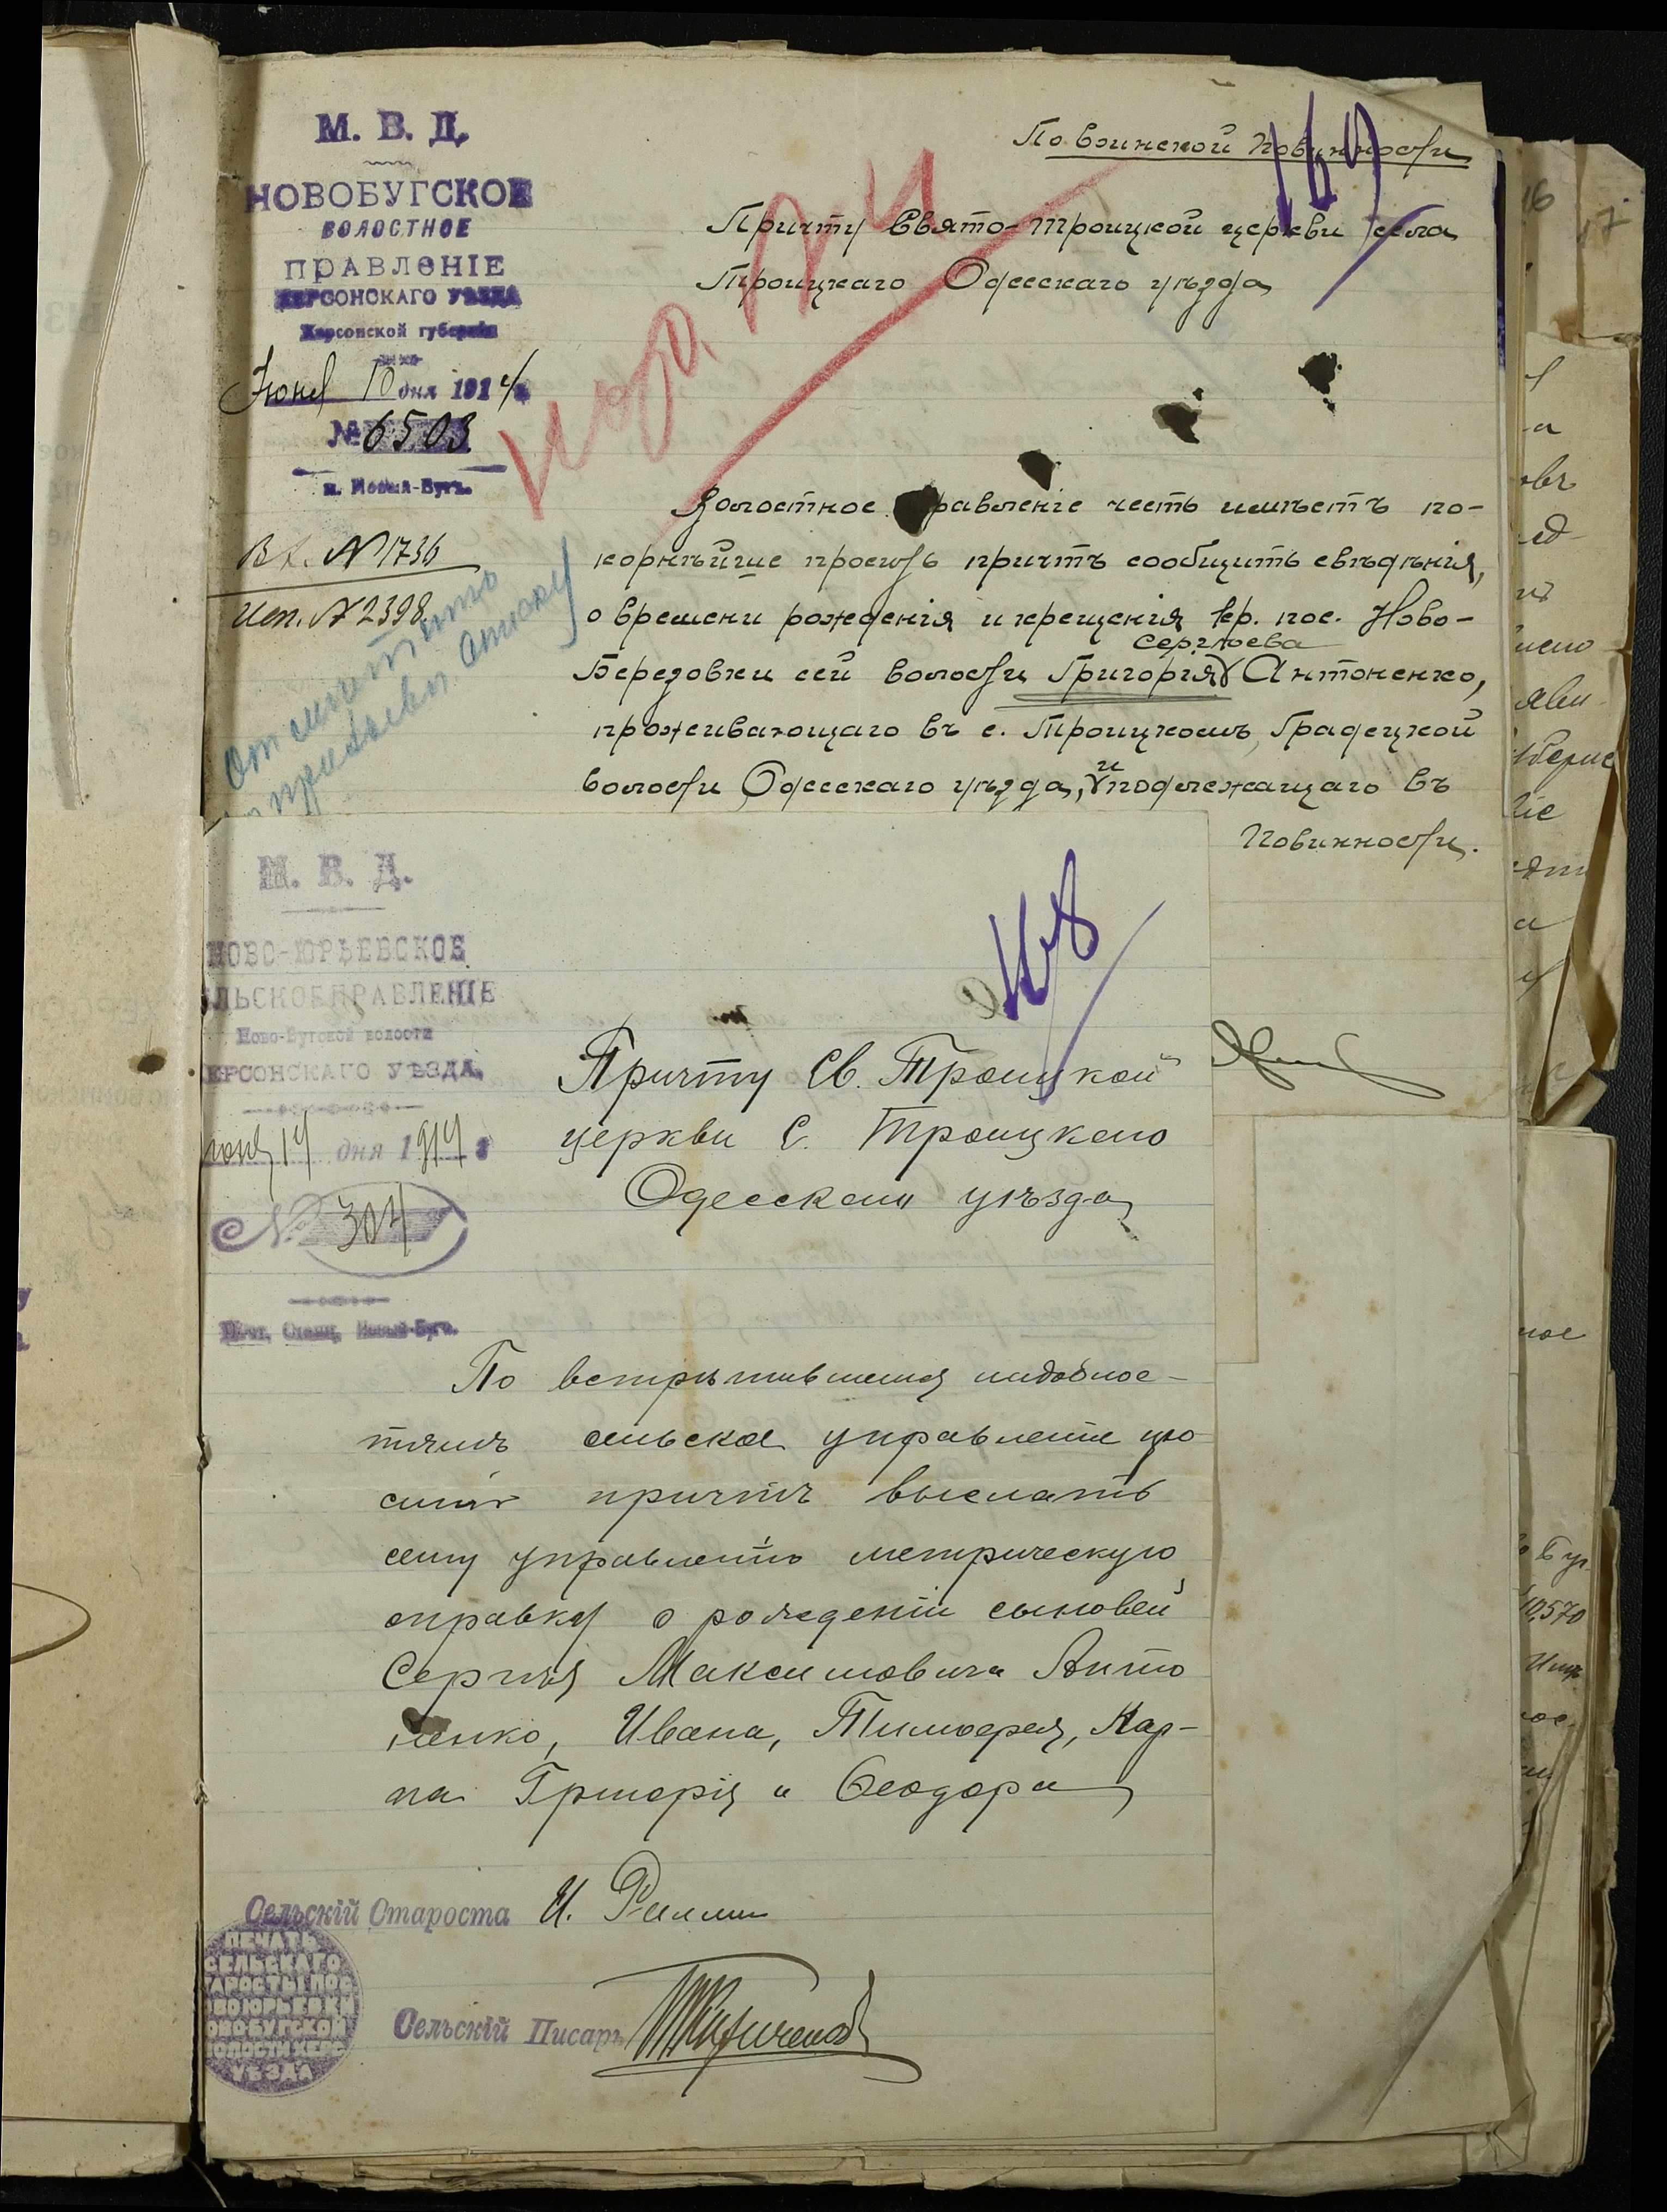 М. В. Д.
НОВОБУГСКОЕ
ВОЛОСТНОЕ
ПРАВЛЕНІЕ
ХЕРСОНСКАГО УѢЗДА
Херсонской губерніи
Іюня 10 дня 1914 г.
№ 6503
п. Новый-Бугъ.
Вх. № 1736
Исп. № 2398
По воинской повинности
169
Причту Свято-Троицкой церкви села
Троицкаго Одесскаго уѣзда
Волостное правленіе честь имѣетъ по-
корнѣйше просить причтъ сообщить свѣдѣнія,
о времени рожденія и крещенія кр. пос. Ново-
Сергѣева
Березовки сей волости Григорія Антоненко,
проживающаго въ с. Троицкомъ, Градецкой
волости Одесскаго уѣзда, и подлежащаго въ
повинности.
М. В. Д.
НОВО-ЮРЬЕВСКОЕ
ЕЛЬСКОЕ ПРАВЛЕНІЕ
Ново-Бугской волости
ХЕРСОНСКАГО УѢЗДА
іюня 14 дня 1914 г
№ 304
Почт. Станц. Новый-Бугъ.
Причту Св. Троицкой
церкви с. Троицкаго
Одесскаго уѣзда
По встрѣтившимся надобнос-
тямъ сельское управленіе про
ситъ причтъ выслать
сему управленію метрическую
справку о рожденіи сыновей
Сергѣя Максимовича Анто
ненко, Ивана, Тимофея, Кар-
па Григорія и Феодора
Сельскій Староста И.
Сельскій Писарь
ПЕЧАТЬ
СЕЛЬСКАГО
АРОСТЫ ПОС
ВОЮРЬЕВКИ
ОВОБУГСКОЙ
ОЛОСТИ ХЕРС
УѢЗДА